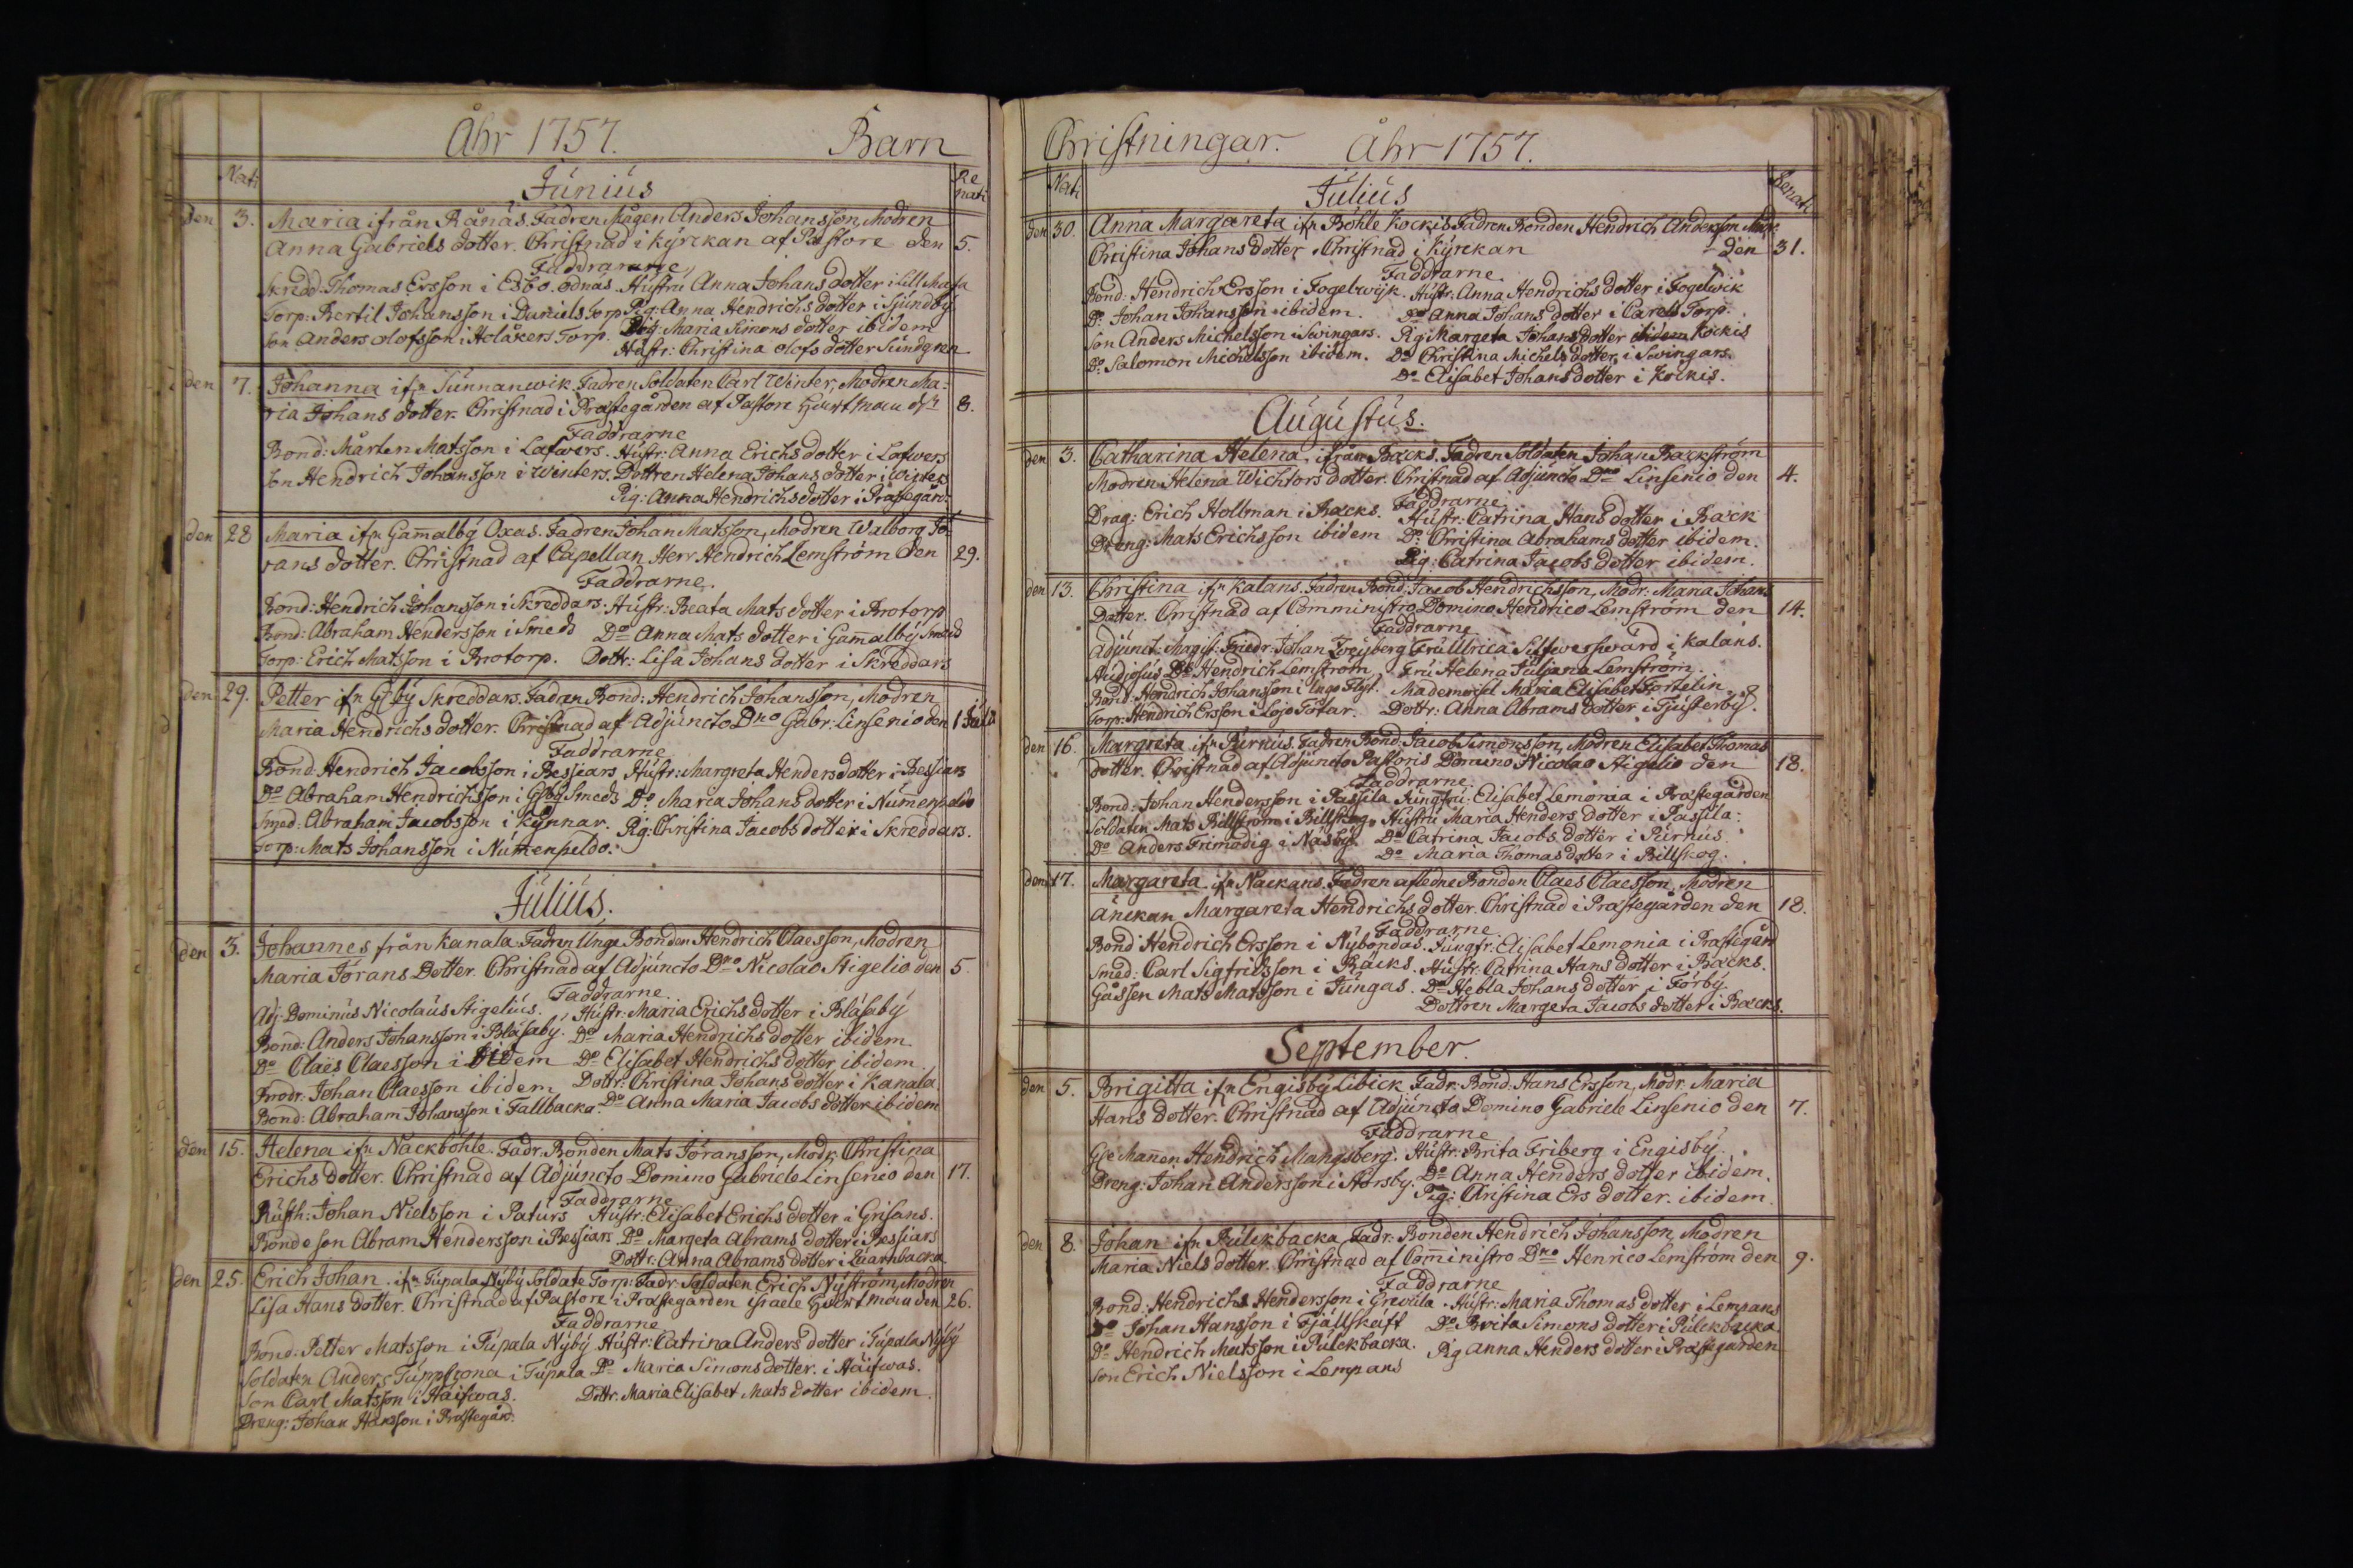 Åhr 1757. Barn
Nati Renati
Junius
den 3. Maria ifrån Rånäs. Fadren Mågen Anders Johansson, Modren
Anna Gabriels dotter. Christnad i Kyrckan af Pastore den 5.
Faddrarne
Skredd. Thomas Ersson i Esbo. Hustru Anna Johans dotter i
Torp: Bertil Johansson i Daniels Torp Pig: Anna Hendrichs dotter i Sjundby
Son Anders Olofsson i Holåkers Torp. Pig: Maria Simons dotter ibidem
Hustr: Christina Olofs dotter Sundgren
den 7. Johanna ifn Sunnanwik. Fadren Soldaten Carl Winter, Modren Ma-
ria Johans dotter. Christnad i Prästegården af Pastore 8.
Faddrarne
Bond: Mårten Matsson i Lafwers. Hustr: Anna Erichs dotter i Lafwers
Son Hendrich Johansson i Winters. Dottren Helena Johans dotter i Winters
Pig: Anna Hendrichs dotter i Prästegård.
den 28 Maria ifn Gamalby Oxas. Fadren Johan Matsson, Modren Walborg Jö-
rans dotter. Christnad af Capellan Herr Hendrich Lemström den 29.
Faddrarne.
Bond: Hendrich Johansson i Skreddars. Hustr: Beata Mats dotter i Brotorp
Bond: Abraham Hendersson i Smeds Do Anna Mats dotter i Gamalby Smeds
Torp: Erich Matsson i Brotorp. Dottr: Lisa Johans dotter i Skreddars
den 29. Petter ifn Gesby Skreddars. Fadren Bond: Hendrich Johansson, Modren
Maria Hendrichs dotter. Christnad af Adjuncto Dno Gabr: Linsenio den 1 Julii
Faddrarne
Bond: Hendrich Jacobsson i Bessiars Hustr: Margreta Henders dotter i Bessiars
Do Abraham Hendrichsson i Gesby Smeds Do Maria Johans dotter i Numenpeldo
Smed: Abraham Jacobsson i Kynnar. Pig: Christina Jacobs dotter i Skreddars.
Torp: Mats Johansson i Numenpeldo.
Julius.
den 3. Johannes från Kanala. Fadren Unge Bonden Hendrich Claesson, Modren
Maria Jörans Dotter. Christnad af Adjuncto Dno Nicolao Stigelio den 5.
Faddrarne.
Adj: Dominus Nicolaus Stigelius. Hustr: Maria Erichs dotter i Blåsaby
Bond: Anders Johansson i Blåsaby. Do Maria Hendrichs dotter ibidem
Do Claes Claesson ibidem Do Elisabet Hendrichs dotter ibidem
Brodr: Johan Claesson ibidem Dottr: Christina Johans dotter i Kanala.
Bond: Abraham Johansson i Fallbacka. Do Anna Maria Jacobs dotter ibidem
den 15. Helena ifn Näckböhle. Fadr: Bonden Mats Jöransson, Modr: Christina
Erichs dotter. Christnad af Adjuncto Domino Gabriele Linsenio den 17.
Faddrarne
Rusth: Johan Nielsson i Paturs Hustr: Elisabet Erichs dotter i Grisans.
Bonde son Abram Hendersson i Bessiars. Do Margeta Abrams dotter i Bessiars
Dottr: Anna Abrams dotter i Quarnbacka
den 25. Erich Johan. ifn Tupala Nyby Soldate Torp: Fadr: Soldaten Erich Nyström, Modren
Lisa Hans dotter. Christnad af Pastore i Prästegården Israele den 26.
Faddrarne
Bond: Petter Matsson i Tupala Nyby Hustr: Catrina Anders dotter i Tupala Nyby
Soldaten Anders i Tupala Do Maria Simons dotter. i Haifwas.
Son Carl Matsson i Haifwas. Dottr. Maria Elisabet Mats dotter ibidem.
Dreng: Johan Hansson i Prästegård.
Christningar. Åhr 1757.
Nati Renati
Julius
den 30. Anna Margareta ifn Böhle Kockis Fadren Bonden Hendrich Andersson Modr
Christina Johans dotter. Christnad i Kyrckan den 31.
Faddrarne.
Bond: Hendrich Ersson i Fogelwijk. Hustr: Anna Hendrichs dotter i Fogelwik
Do Johan Johansson ibidem. Do Anna Johans dotter i Carels Torp.
Son Anders Michelsson i Swingars. Pig: Margeta Johans dotter ibidem Kockis
Do Salomon Michelsson ibidem. Do Christina Michels dotter i Swingars.
Do Elisabet Johans dotter i Kockis.
Augustus.
den 3. Catharina Helena ifrån Bäcks. Fadren Soldaten Johan Backström
Modren Helena Wichtors dotter. Christnad af Adjuncto Dno Linsenio den 4.
Faddrarne
Drag: Erich Holtman i Bäcks. Hustr: Catrina Hans dotter i Bäck
Dreng: Mats Erichsson ibidem Do Christina Abrahams dotter ibidem.
Pig: Catrina Jacobs dotter ibidem.
den 13. Christina ifn Kalans. Fadren Bond: Jacob Hendrichsson, Modr: Maria Johans
Dotter. Christnad af Comministro Domino Hendrico Lemström den 14.
Faddrarne
Adjunct: Magist: Friedr: Johan Zweyberg Fru Ulrica Silfwerswärd i Kalans.
Studiosus Dn Hendrich Lemström Fru Helena Juliana Lemström.
Bond: Hendrich Johansson i Ingo Flyt. Mademoisel Maria Elisabet Fortelin
Torp: Hendrich Ersson i Lojo Tötar. Dottr: Anna Abrams dotter i Tjusterby.
den 16. Margreta ifn Purnus. Fadren Bond: Jacob Simonsson, Modren Elisabet Thomas
dotter. Christnad af Adjuncto Pastoris Domino Nicolao Stigelio den 18.
Faddrarne
Bond: Johan Hendersson i Passila Jungfru: Elisabet Lemonia i Prästegården
Soldaten Mats Billström i Billskog. Hustru Maria Henders dotter i Passila:
Do Anders Frimodig i Näsby. Do Catrina Jacobs dotter i Purnus.
Do Maria Thomas dotter i Billskog.
den 17. Margareta ifn Nackans. Fadren afledne Bonden Claes Claesson, Modren
Änckan Margareta Hendrichs dotter. Christnad i Prästegården den 18.
Faddrarne
Bond Hendrich Ersson i Nybondas. Jungfr: Elisabet Lemonia i Prästegård
Smed: Carl Sigfridsson i Bäcks. Hustr: Catrina Hans dotter i Bäcks.
Gåssen Mats Matsson i Jungas. Do Hebla Johans dotter i Förby.
Dottren Margeta Jacobs dotter i Bäcks.
September.
den 5. Brigitta ifn Engisby Libick Fadr: Bond: Hans Ersson, Modr. Maria
Hans dotter. Christnad af Adjuncto Domino Gabriele Linsenio den 7.
Faddrarne
Hendrich Mangsberg. Hustr: Brita Friberg i Engisby.
Dreng: Johan Andersson i Storsby. Do Anna Henders dotter ibidem.
Pig: Christina Ers dotter. ibidem.
den 8. Johan ifn Pulckbacka Fadr: Bonden Hendrich Johansson, Modren
Maria Niels dotter. Christnad af Comministro Dno Henrico Lemström den 9.
Faddrarne
Bond: Hendrich Hendersson i Grevula. Hustr: Maria Thomas dotter i Lempans
Do Johan Hansson i Fjällskäft Do Brita Simons dotter i Pulckbacka
Do Hendrich Matsson i Pulckbacka. Pig Anna Henders dotter i Prästegården
Son Erich Nielsson i Lempans